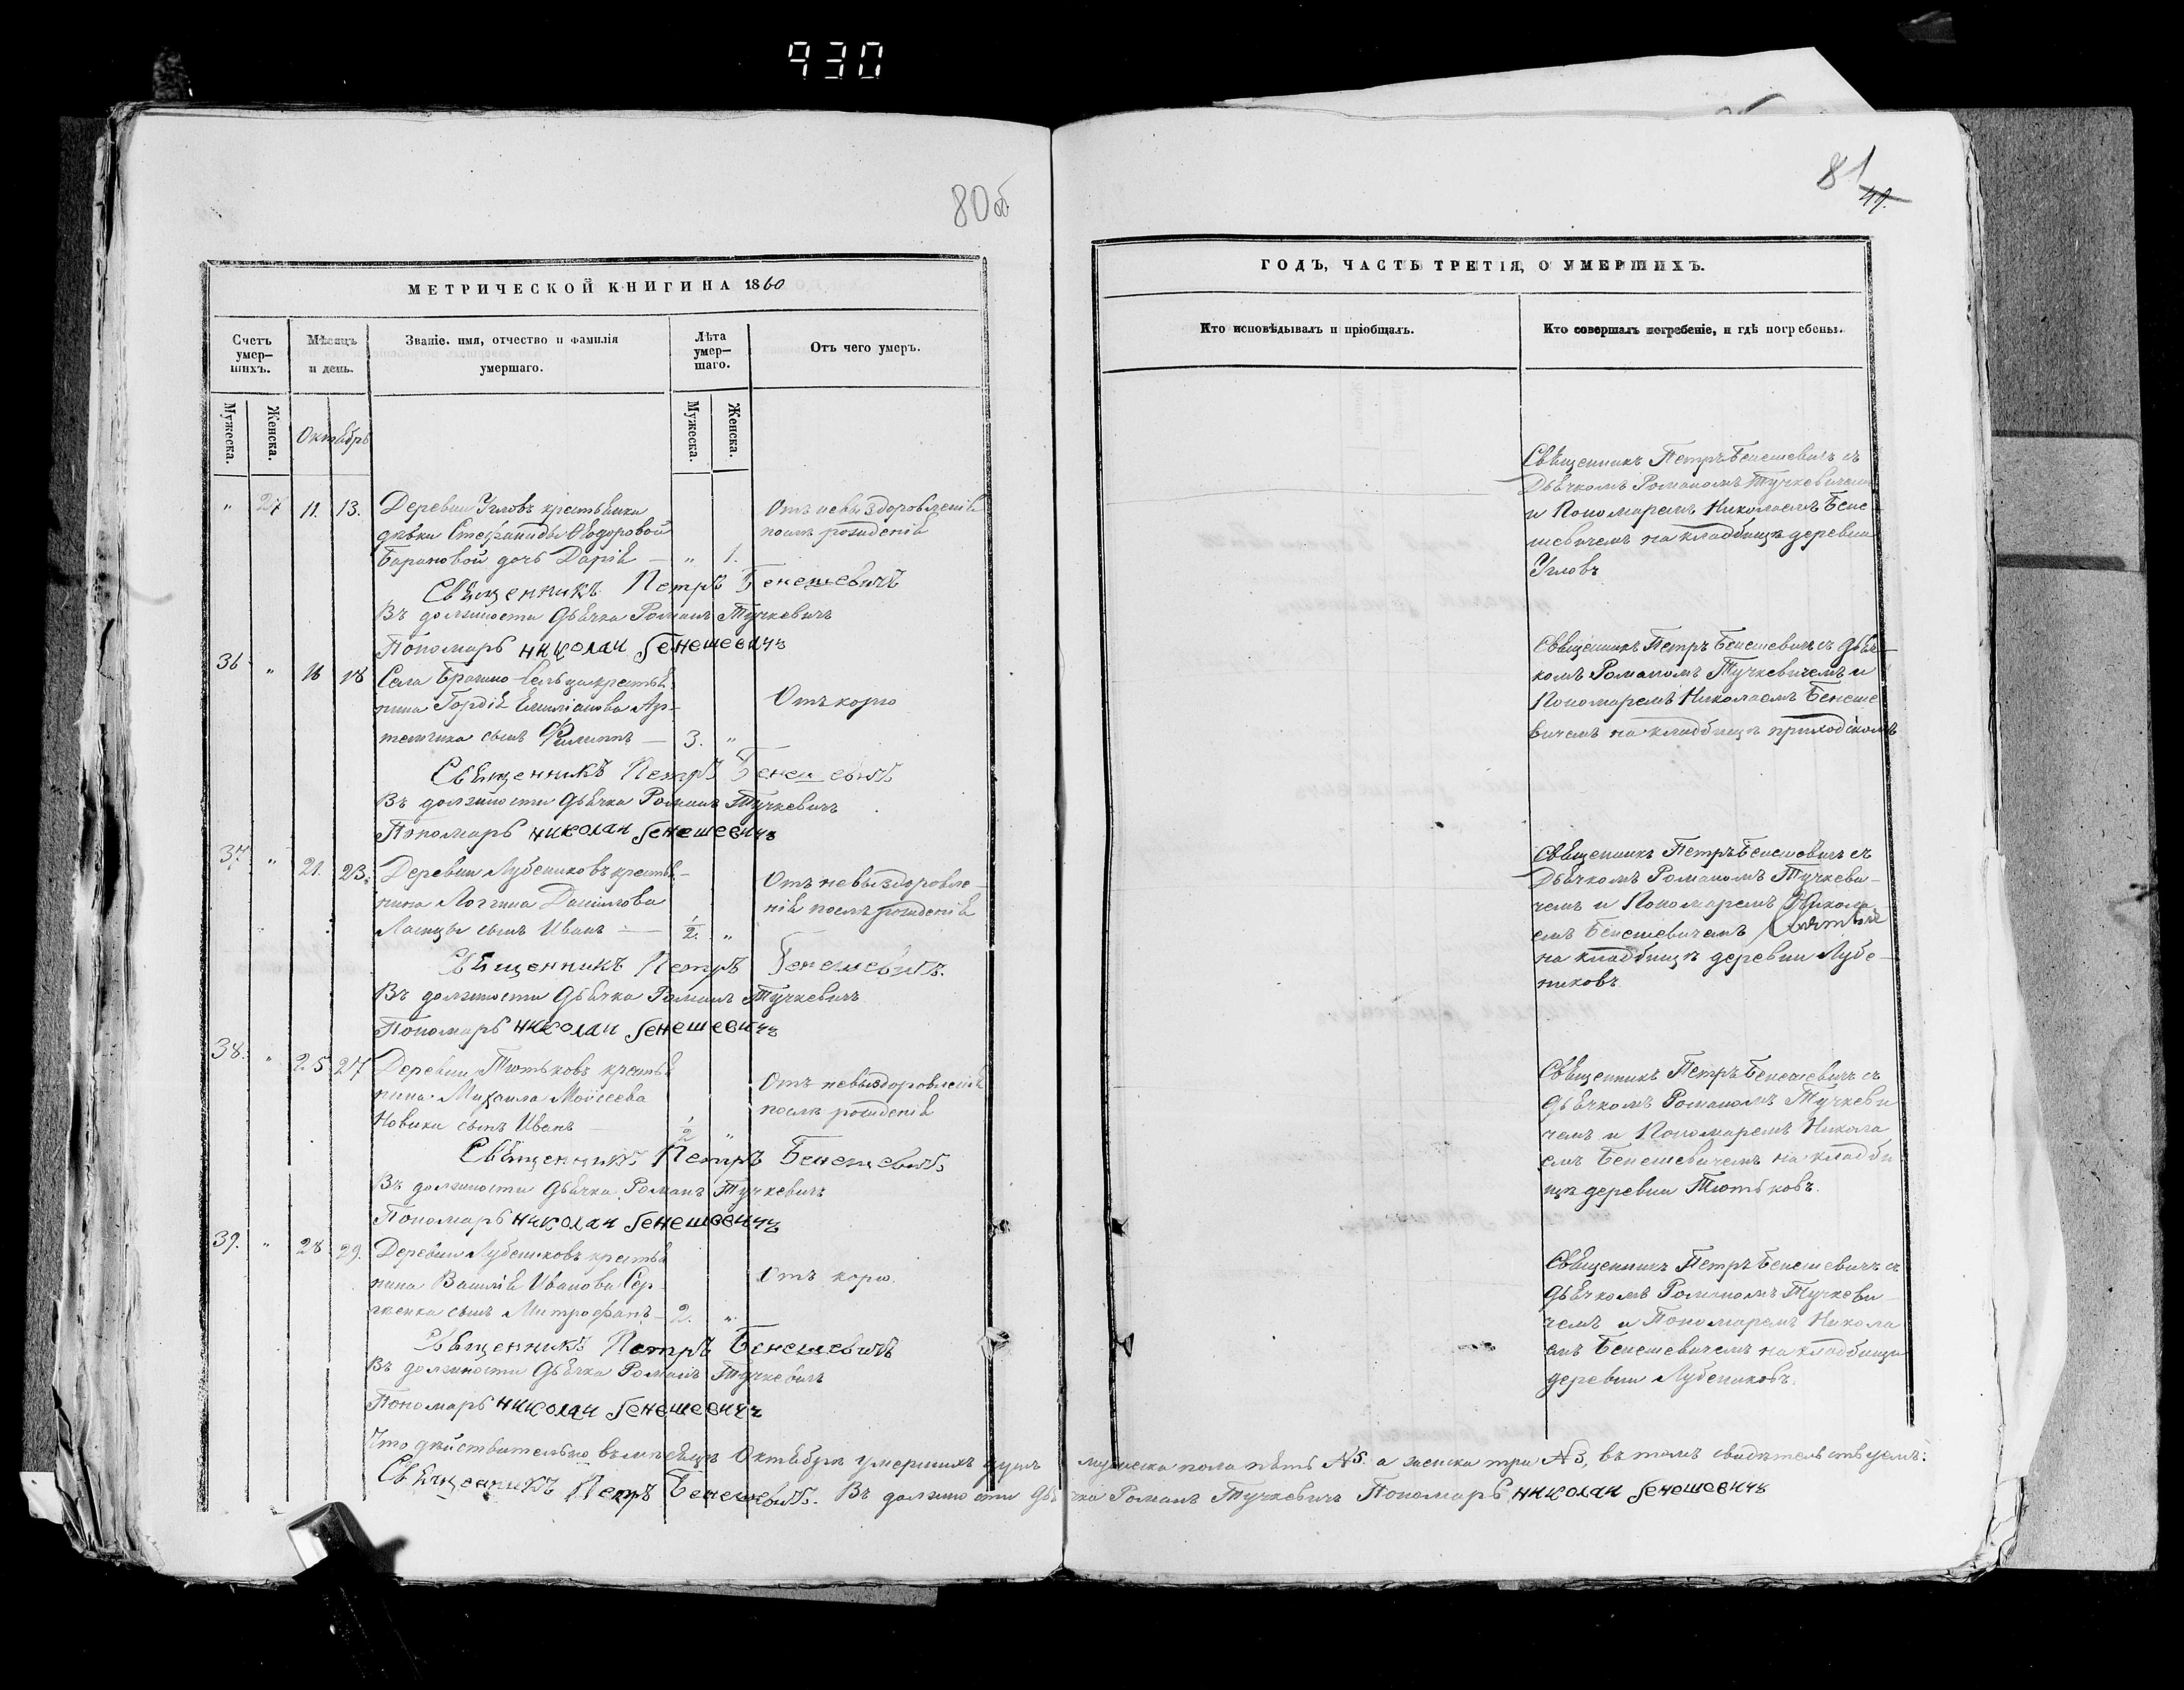 930
80об
МЕТРИЧЕСКОЙ КНИГИ НА 1860
Счетъ умер- шихъ.
Мѣсяцъ и день.
Званіе, имя, отчество и фамилія умершаго.
Лѣта умер- шаго.
Отъ чего умеръ.
Мужеска.
Женска.
Октябрь
Мужеска.
Женска.
" 27 11. 13. Деревни Угловъ крестьянки Отъ невыздоровленія
дѣвки Стефаниды Ѳеодоровой послѣ рожденія
Барановой дочь Дарія — " 1.
Священникъ Петръ Бенешевичъ
Въ должности Дьячка Романъ Тучкевичъ
Пономарь Николай Бенешевичъ
36 " 16 18 Села Брагино-Сельца крестья-
нина Гордія Емиліанова Ар- Отъ корю
темчика сынъ Филиппъ — 3. "
Священникъ Петръ Бенешевичъ
Въ должности Дьячка Романъ Тучкевичъ
Пономарь Николай Бенешевичъ
37. " 21. 23. Деревни Лубениковъ крестья-
нина Логгина Данилова Отъ невыздоровле-
сынъ Иванъ — 1/2. " нія послѣ рожденія
Священникъ Петръ Бенешевичъ.
Въ должности Дьячка Романъ Тучкевичъ
Пономарь Николай Бенешевичъ
38. " 25 27 Деревни Тютьковъ крестья
нина Михаила Моисеева Отъ невыздоровленія
Новика сынъ Иванъ — 1/2 " послѣ рожденія
Священникъ Петръ Бенешевичъ
Въ должности Дьячка Романъ Тучкевичъ
Пономарь Николай Бенешевичъ
39. " 28 29. Деревни Лубениковъ крестья
нина Василія Иванова Сер- Отъ корю.
сынъ Митрофанъ — 2. "
Священникъ Петръ Бенешевичъ
Въ должности Дьячка Романъ Тучкевичъ
Пономарь Николай Бенешевичъ
81
49.
ГОДЪ, ЧАСТЬ ТРЕТІЯ, О УМЕРШИХЪ.
Кто исповѣдывалъ и пріобщалъ.
Кто совершалъ погребеніе, и гдѣ погребены.
Священникъ Петръ Бенешевичъ съ
Дьячкомъ Романомъ Тучкевичемъ
и Пономаремъ Николаемъ Бене
шевичемъ на кладбищѣ деревни
Угловъ
Священникъ Петръ Бенешевичъ съ Дьяч-
комъ Романомъ Тучкевичемъ и
Пономаремъ Николаемъ Бенеше
вичемъ на кладбищѣ приходскомъ
Священникъ Петръ Бенешевичъ съ
Дьячкомъ Романомъ Тучкеви-
чемъ и Пономаремъ Никола
емъ Бенешевичемъ
на кладбищѣ деревни Лубе-
никовъ
Священникъ Петръ Бенешевичъ съ
Дьячкомъ Романомъ Тучкеви
чемъ и Пономаремъ Никола
емъ Бенешевичемъ на кладби
щѣ деревни Тютьковъ.
Священникъ Петръ Бенешевичъ съ
Дьячкомъ Романомъ Тучкеви-
чемъ и Пономаремъ Никола
емъ Бенешевичемъ на кладбищѣ
деревни Лубениковъ.
Что дѣйствительно въ мѣсяцѣ Октябрѣ умершихъ душъ мужеска пола пять №5. а женска три №3, въ томъ свидѣтельствуемъ:
Священникъ Петръ Бенешевичъ. Въ должности Дьячка Романъ Тучкевичъ Пономарь Николай Бенешевичъ